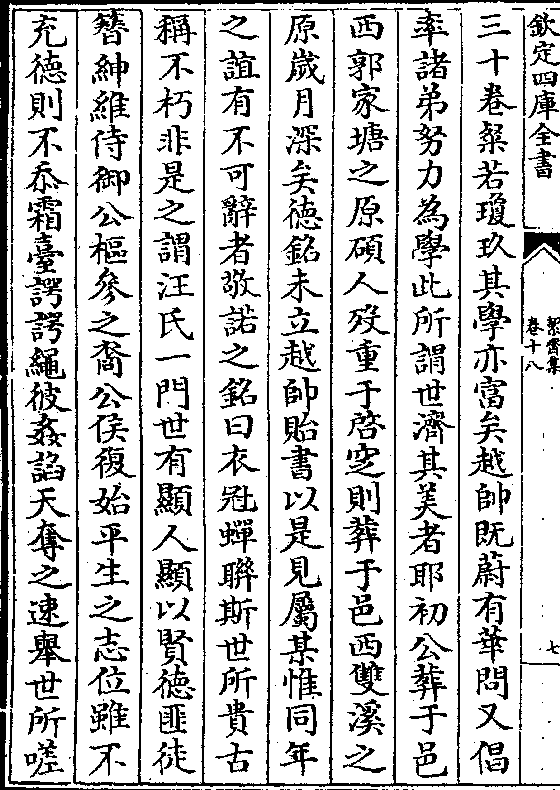 欽定四庫全書
絜齋集
卷十八
七
三十卷粲若瓊玖其學亦富矣越帥既蔚有華問又倡
率諸弟努力為學此所謂世濟其美者耶初公葬于邑
西郭家塘之原碩人歿重于啓窆則葬于邑西雙溪之
原歲月深矣徳銘未立越帥貽書以是見屬某惟同年
之誼有不可辭者敬諾之銘曰衣冠蟬聨斯世所貴古
稱不朽非是之謂汪氏一門世有顯人顯以賢徳匪徒
簪紳維侍御公樞叅之裔公侯復始平生之志位雖不
充徳則不忝霜臺諤諤繩彼姦諂天奪之速舉世所嗟